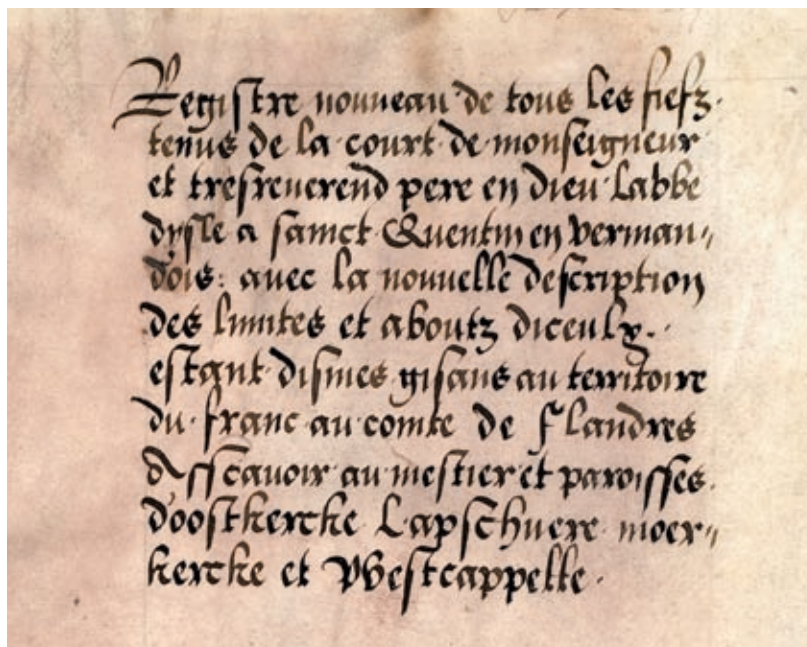 Registre nouveau de tous les fiefz.
tenus de la court de monseigneur
et tresreuerend pere en dieu labbe
dysle a sainct Quentin en verman=
dois: auec la nouuelle description
des limites et aboutz diceulx.
estant dismes gisans au territoire
du franc au comte de flandres
Asscauoir au mestier et paroisses.
d'oostkercke Lapschuere moer=
kercke et Westcappelle.